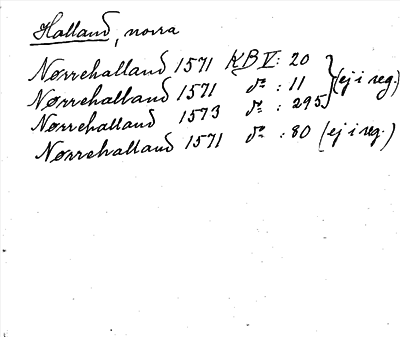 Halland, norra
Nørrehalland 1571 KB V: 20
Nørrehalland 1571 do : 11 (ej i reg.)
Nørrehalland 1573 do : 295
Nørrehalland 1571 do : 80 (ej i reg.)